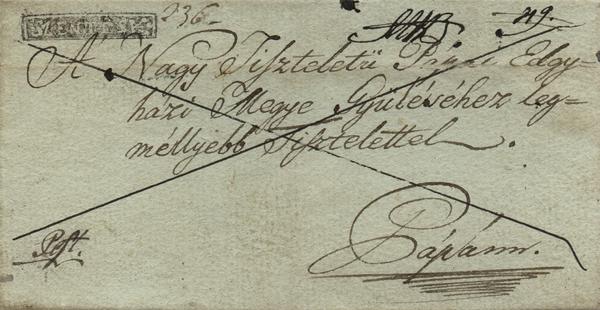 236.
49.
A Nagy Tiszteletü Pápai Edgy=
házi Megye Gyüléséhez leg=
méllyebb Tisztelettel.
Pápánn.
Post.